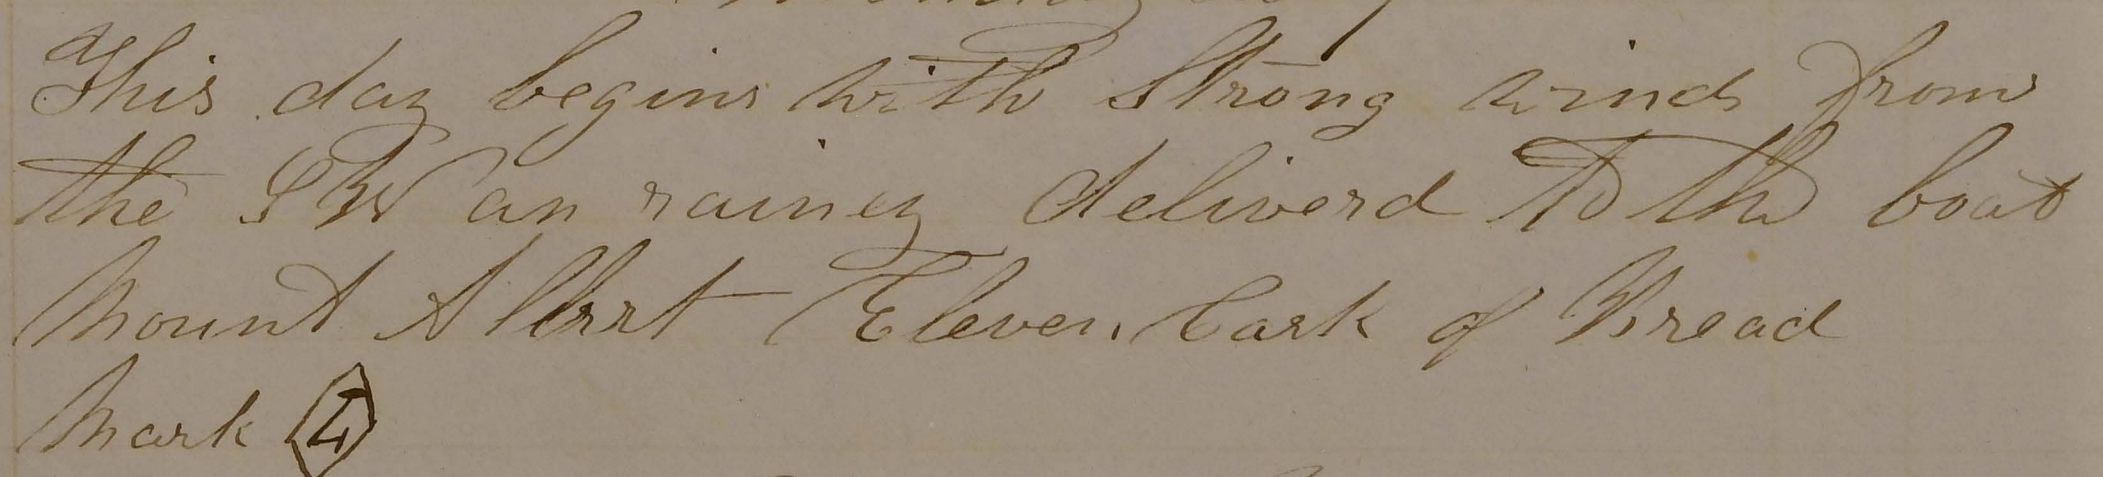 This day begins with Strong winds from
the S W an rainey deliverd to the boat
Mount Albert Eleven Cask of Bread
Mark 4